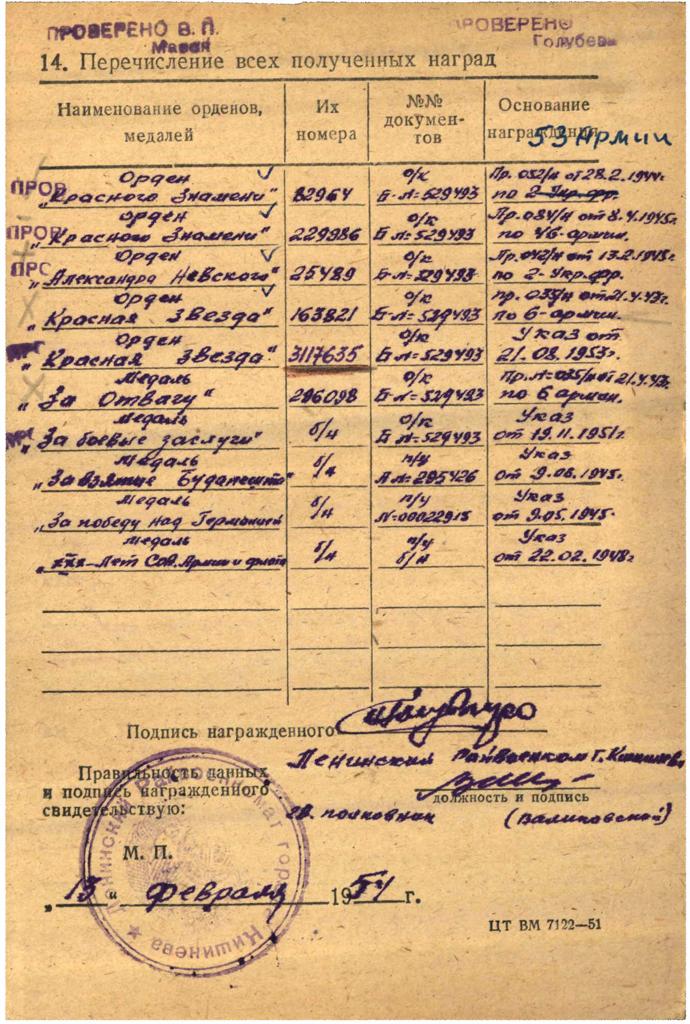 ПРОВЕРЕНО В. П.
ПРОВЕРЕНО
Голубева
14. Перечисление всех полученных наград
Наименование орденов, медалей
Их номера
№№ документов
Основание награждения
53 Армии
Орден о/к Пр. 052/н от 28.2.1944г.
ПРОВ „Красного Знамени" 82964 Б-№=529493 по 2 Укр.фр.
Орден о/к Пр. 084/н от 8.4.1945г.
ПРОВ „Красного Знамени" 229986 Б №=529493 по 46-армии.
Орден о/к Пр. 042/н от 13.2.1945г.
ПРО „Александра Невского" 25489 Б-№=529493 по 2-Укр.фр.
Орден о/к пр. 035/н от 21.4.43г.
„Красная Звезда" 163821 Б-№=529493 по 6-армии.
Орден о/к Указ от
„Красная Звезда" 3117635 Б-№=529493 21.08.1953г.
Медаль о/к Пр.№=035/н от 21.4.43г.
„За Отвагу" 296098 Б-№=529493 по 6 армии.
Медаль о/к Указ
„За боевые заслуги" б/н Б-№=529493 от 19.11.1951г.
Медаль п/у Указ
„За взятие Будапешта" б/н А№=295426 от 9.06.1945г.
Медаль п/у Указ
„За победу над Германией б/н №=0022915 от 9.05.1945г.
Медаль п/у Указ
„ХХХ-Лет Сов. Армии и флота б/н б/н от 22.02.1948г.
Подпись награжденного
Ленинский Райвоенком г. Кишинева
Правильность данных
и подпись награжденного
свидетельствую:
должность и подпись
гв. полковник (Валиковский)
М. П.
Ленинский Райвоенкомат города Кишинева
„13" февраля 1954 г.
ЦТ ВМ 7122—51